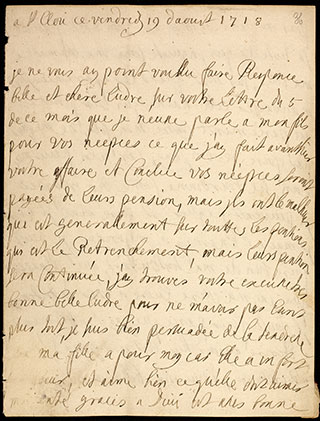 a St Clou ce vendredy 19 daoust 1718
je ne vous ay point voullu faire Responce
belle et chere Ludre sur vostre Lettre du 5
de ce mois que je neusse parlé a mon fils
pour vos niepces ce que j'ay fait avanthier
vostre affaire et Conclüe vos niepces seront
payées de leurs pension, mais ils ont le malheur
qui est generallement sur touttes les pentions
qui est le Retrenchement, mais leurs pention
sera Continuée, j'ay trouves vostre excusse
bonne belle Ludre pour ne m'avoir pas Escrit
plus tost, je suis bien persuadée de la
ma fille a pour moy car Elle a un fort
et aime bien ce qu'elle doit aimer
graces a Dieu est tres bonne